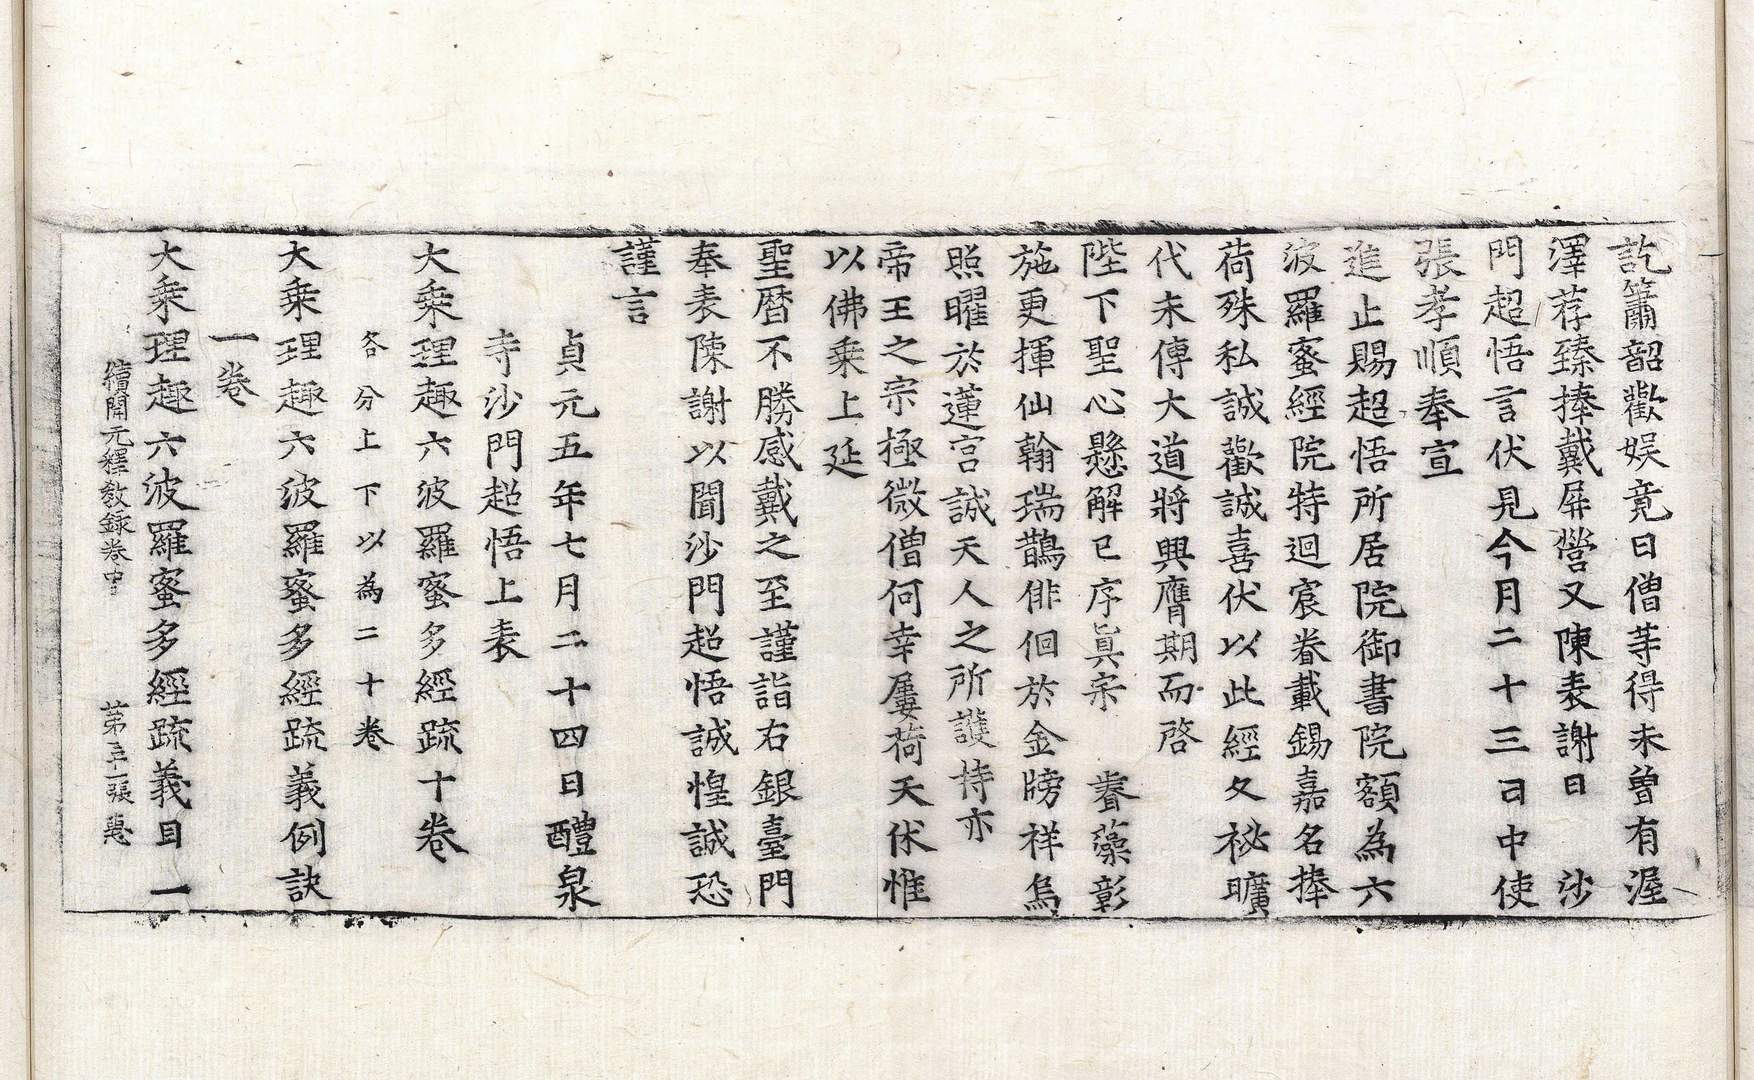 訖簫韶歡娛竟日僧等得未曾有渥
澤荐臻捧戴屏營又陳表謝曰　沙
門超悟言伏見今月二十三日中使
張孝順奉宣
進止賜超悟所居院御書院額為六
波羅蜜經院特迴宸眷載錫嘉名捧
荷殊私誠歡誠喜伏以此經久祕曠
代未傳大道將興膺期而啓
陛下聖心懸解已序真宗　睿藻彰
施更揮仙翰瑞鵲俳佪於金牓祥烏
照曜於蓮宮誠天人之所護持亦
帝王之宗極微僧何幸屢荷天休惟
以佛乗上延
聖曆不勝感戴之至謹詣右銀臺門
奉表陳謝以聞沙門超悟誠惶誠恐
謹言
貞元五年七月二十四日醴泉
寺沙門超悟上表
大乗理趣六波羅蜜多經疏十卷
各分上下以為二十卷
大乗理趣六波羅蜜多經疏義例訣
一卷
大乗理趣六波羅蜜多經疏義目一
續開元釋教録卷中　第三十二張　惠